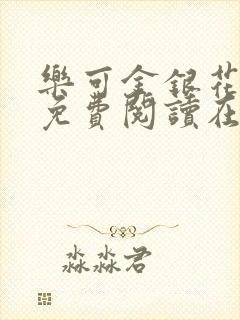 樂可金銀花
免費閱讀在
淼淼君